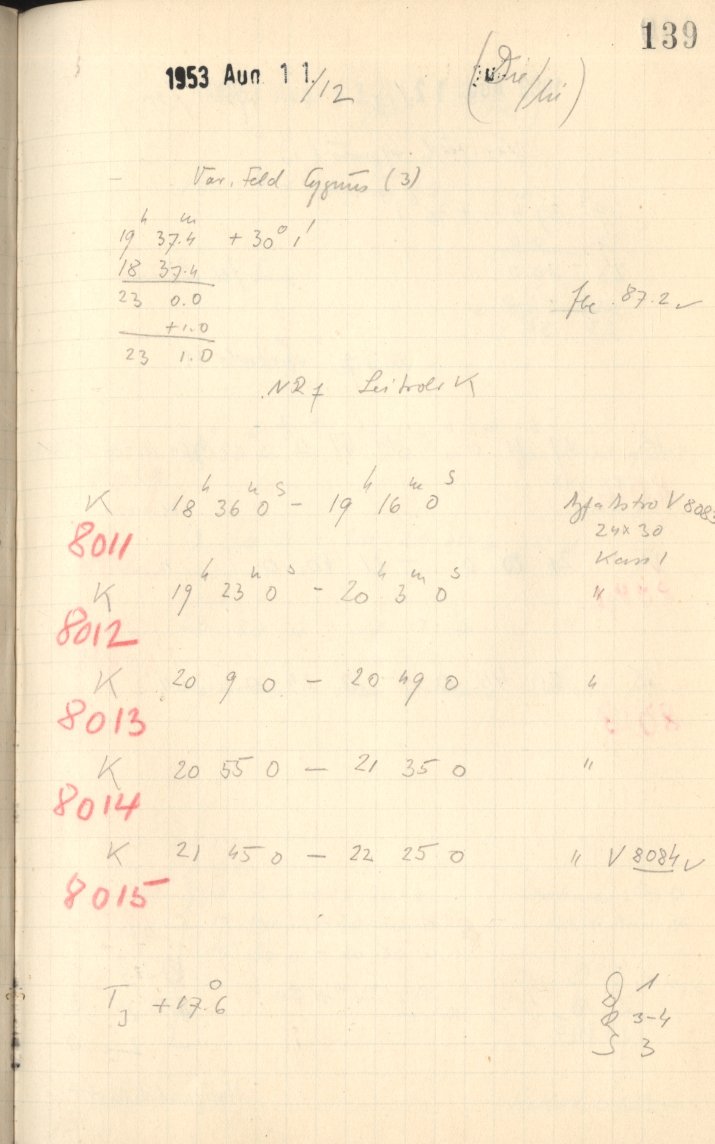 139
1953 Aug 11/12
Var. Feld Cygnus (3)
19h 37.4m + 30° 1'
18 37.4
23 0.0
87.2
+1.0
23 1.0
Leitrohr K
K 18h 36m 0s – 19h 16m 0s Agfa Astro V 8083
8011
24x30
Kass 1
K 19h 23m 0s – 20h 3m 0s "
8012
K 20 9 0 – 20 49 0 "
8013
K 20 55 0 – 21 35 0 "
8014
K 21 45 0 – 22 25 0 " V 8084
8015
TJ +17.6° 1
3-4
S 3